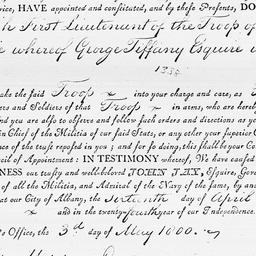 vice, HAVE appointed and constituted, and by these Presents, DO
the First Lieutenant of the Troop of
whereof George Tiffany Esquire
take the said Troop into your charge and care, as
ers and Soldiers of that Troop in arms, who are hereby
and you are also to observe and follow such orders and directions as yo
in Chief of the Militia of our said State, or any other your Superior O
ce of the trust reposed in you; and for so doing, this shall be your Co
cil of Appointment: IN TESTIMONY whereof, We have caused
NESS our trusty and well-beloved JOHN JAY, Esquire, Gover
of all the Militia, and Admiral of the Navy of the same, by and
at our City of Albany, the sixteenth day of April
and in the twenty-fourth year of our Independence.
's Office, the 3d day of May 1800.